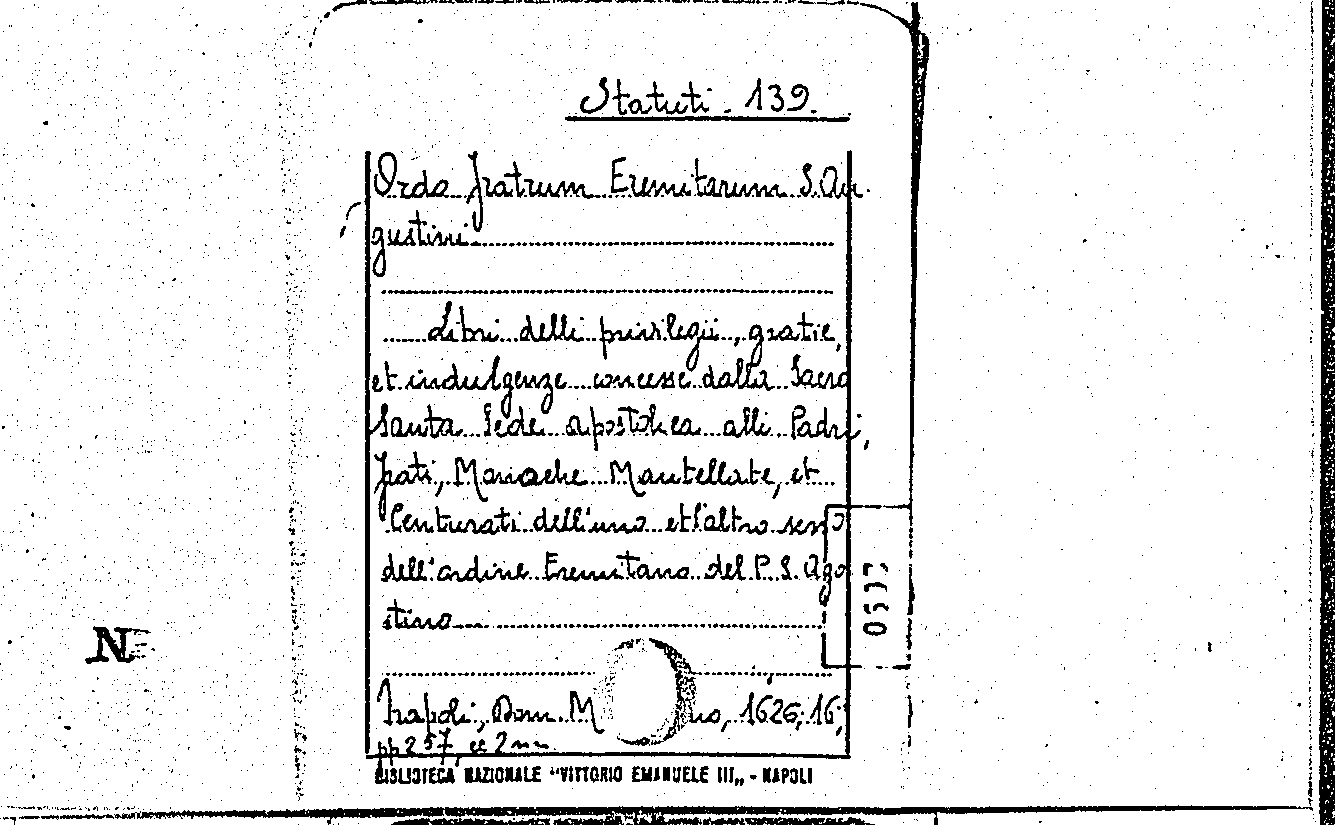 Statuti - 139.
Ordo fratrum Eremitarum S. Au-
gustini
Libri delli privilegii, gratie,
et indulgenze concesse dalla Sacra
Santa Sede apostolica alli Padri,
frati, Monache Mantellate, et
Centurati dell'uno et l'altro sesso
dell'ordine Eremitano del P. S. Ago
stino
Napoli, Dom. M no, 1626; 16;
pp 257, cc 2 nn
BIBLIOTECA NAZIONALE "VITTORIO EMANUELE III„ - NAPOLI
N